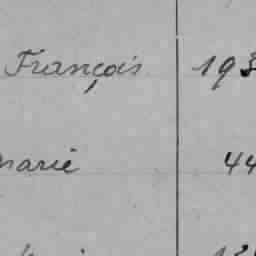 François 193
marie 44